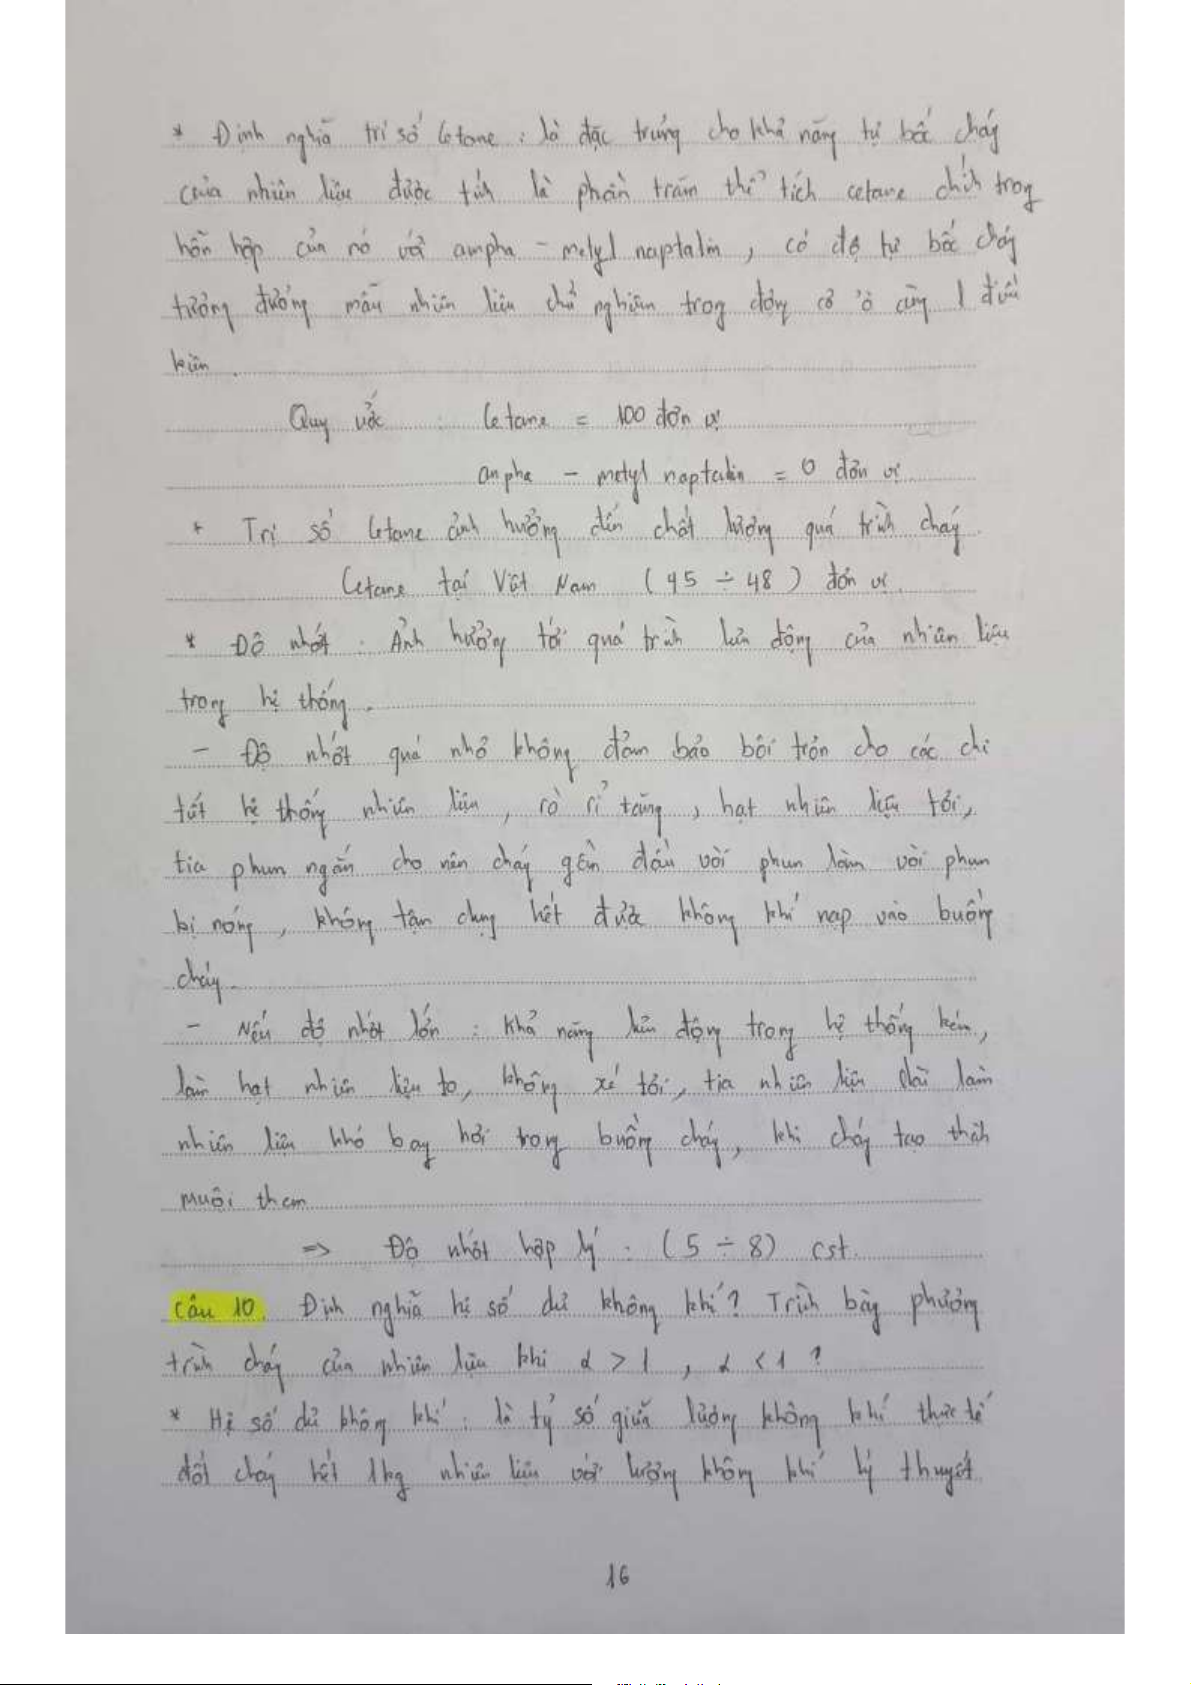 * Định nghĩa trị số Cetane : là đặc trưng cho khả năng tự bốc cháy
của nhiên liệu được tính là phần trăm thể tích cetane chính trong
hỗn hợp của nó với ampha - metyl naptalin, có độ tự bốc cháy
tương đương mẫu nhiên liệu thử nghiệm trong động cơ ở cùng 1 điều
kiện.
Quy ước : Cetane = 100 đơn vị
anpha - metyl naptalin = 0 đơn vị
+ Trị số Cetane ảnh hưởng đến chất lượng quá trình cháy.
Cetane tại Việt Nam (45 ÷ 48) đơn vị.
* Độ nhớt : Ảnh hưởng tới quá trình lưu động của nhiên liệu
trong hệ thống.
- Độ nhớt quá nhỏ không đảm bảo bôi trơn cho các chi
tiết hệ thống nhiên liệu, rò rỉ tăng, hạt nhiên liệu tơi,
tia phun ngắn cho nên cháy gần đầu vòi phun làm vòi phun
bị nóng, không tận dụng hết được không khí nạp vào buồng
cháy.
- Nếu độ nhớt lớn : Khả năng lưu động trong hệ thống kém,
làm hạt nhiên liệu to, không xé tơi, tia nhiên liệu dài làm
nhiên liệu khó bay hơi trong buồng cháy, khi cháy tạo thành
muội than
=> Độ nhớt hợp lý : (5 ÷ 8) cst.
Câu 10. Định nghĩa hệ số dư không khí? Trình bày phương
trình cháy của nhiên liệu khi α > 1, α < 1 ?
* Hệ số dư không khí : là tỷ số giữa lượng không khí thực tế
đốt cháy hết 1kg nhiên liệu với lượng không khí lý thuyết
16